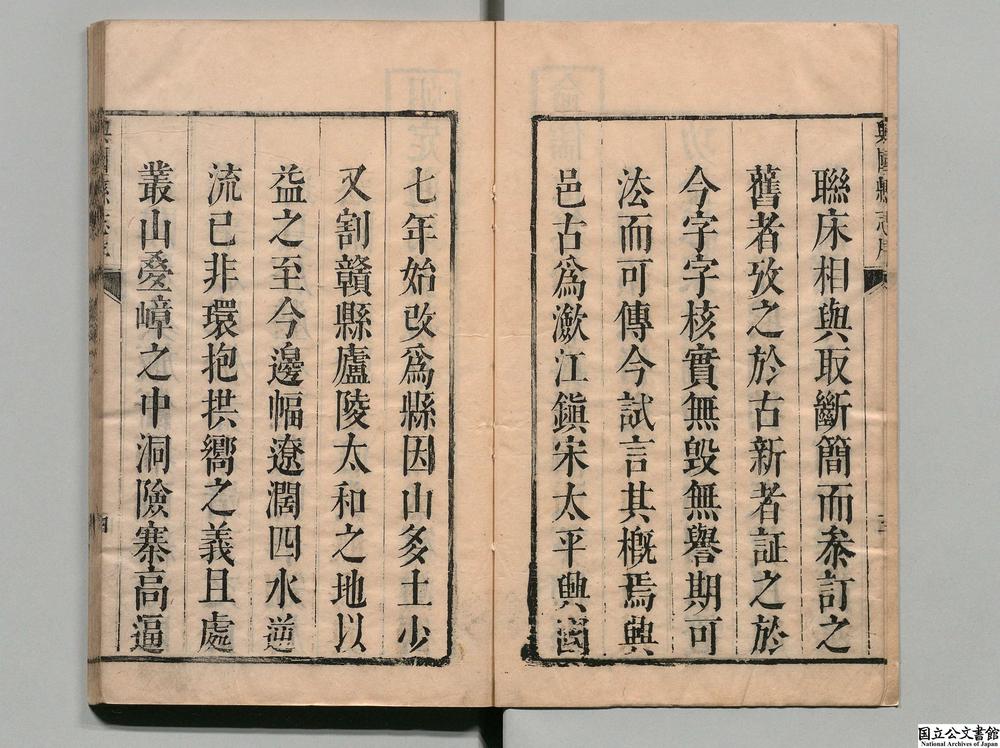 興國縣志序
三
聯床相與取斷簡而叅訂之
舊者攷之於古新者証之於
今字字核實無毀無譽期可
法而可傳今試言其槪焉興
邑古爲潋江鎮宋太平興國
七年始改爲縣因山多土少
又割贛縣廬陵太和之地以
益之至今邊幅遼濶四水逆
流已非環抱拱嚮之義且處
叢山疊嶂之中洞險寨高逼
興國縣志序
四
国立公文書館
National Archives of Japan